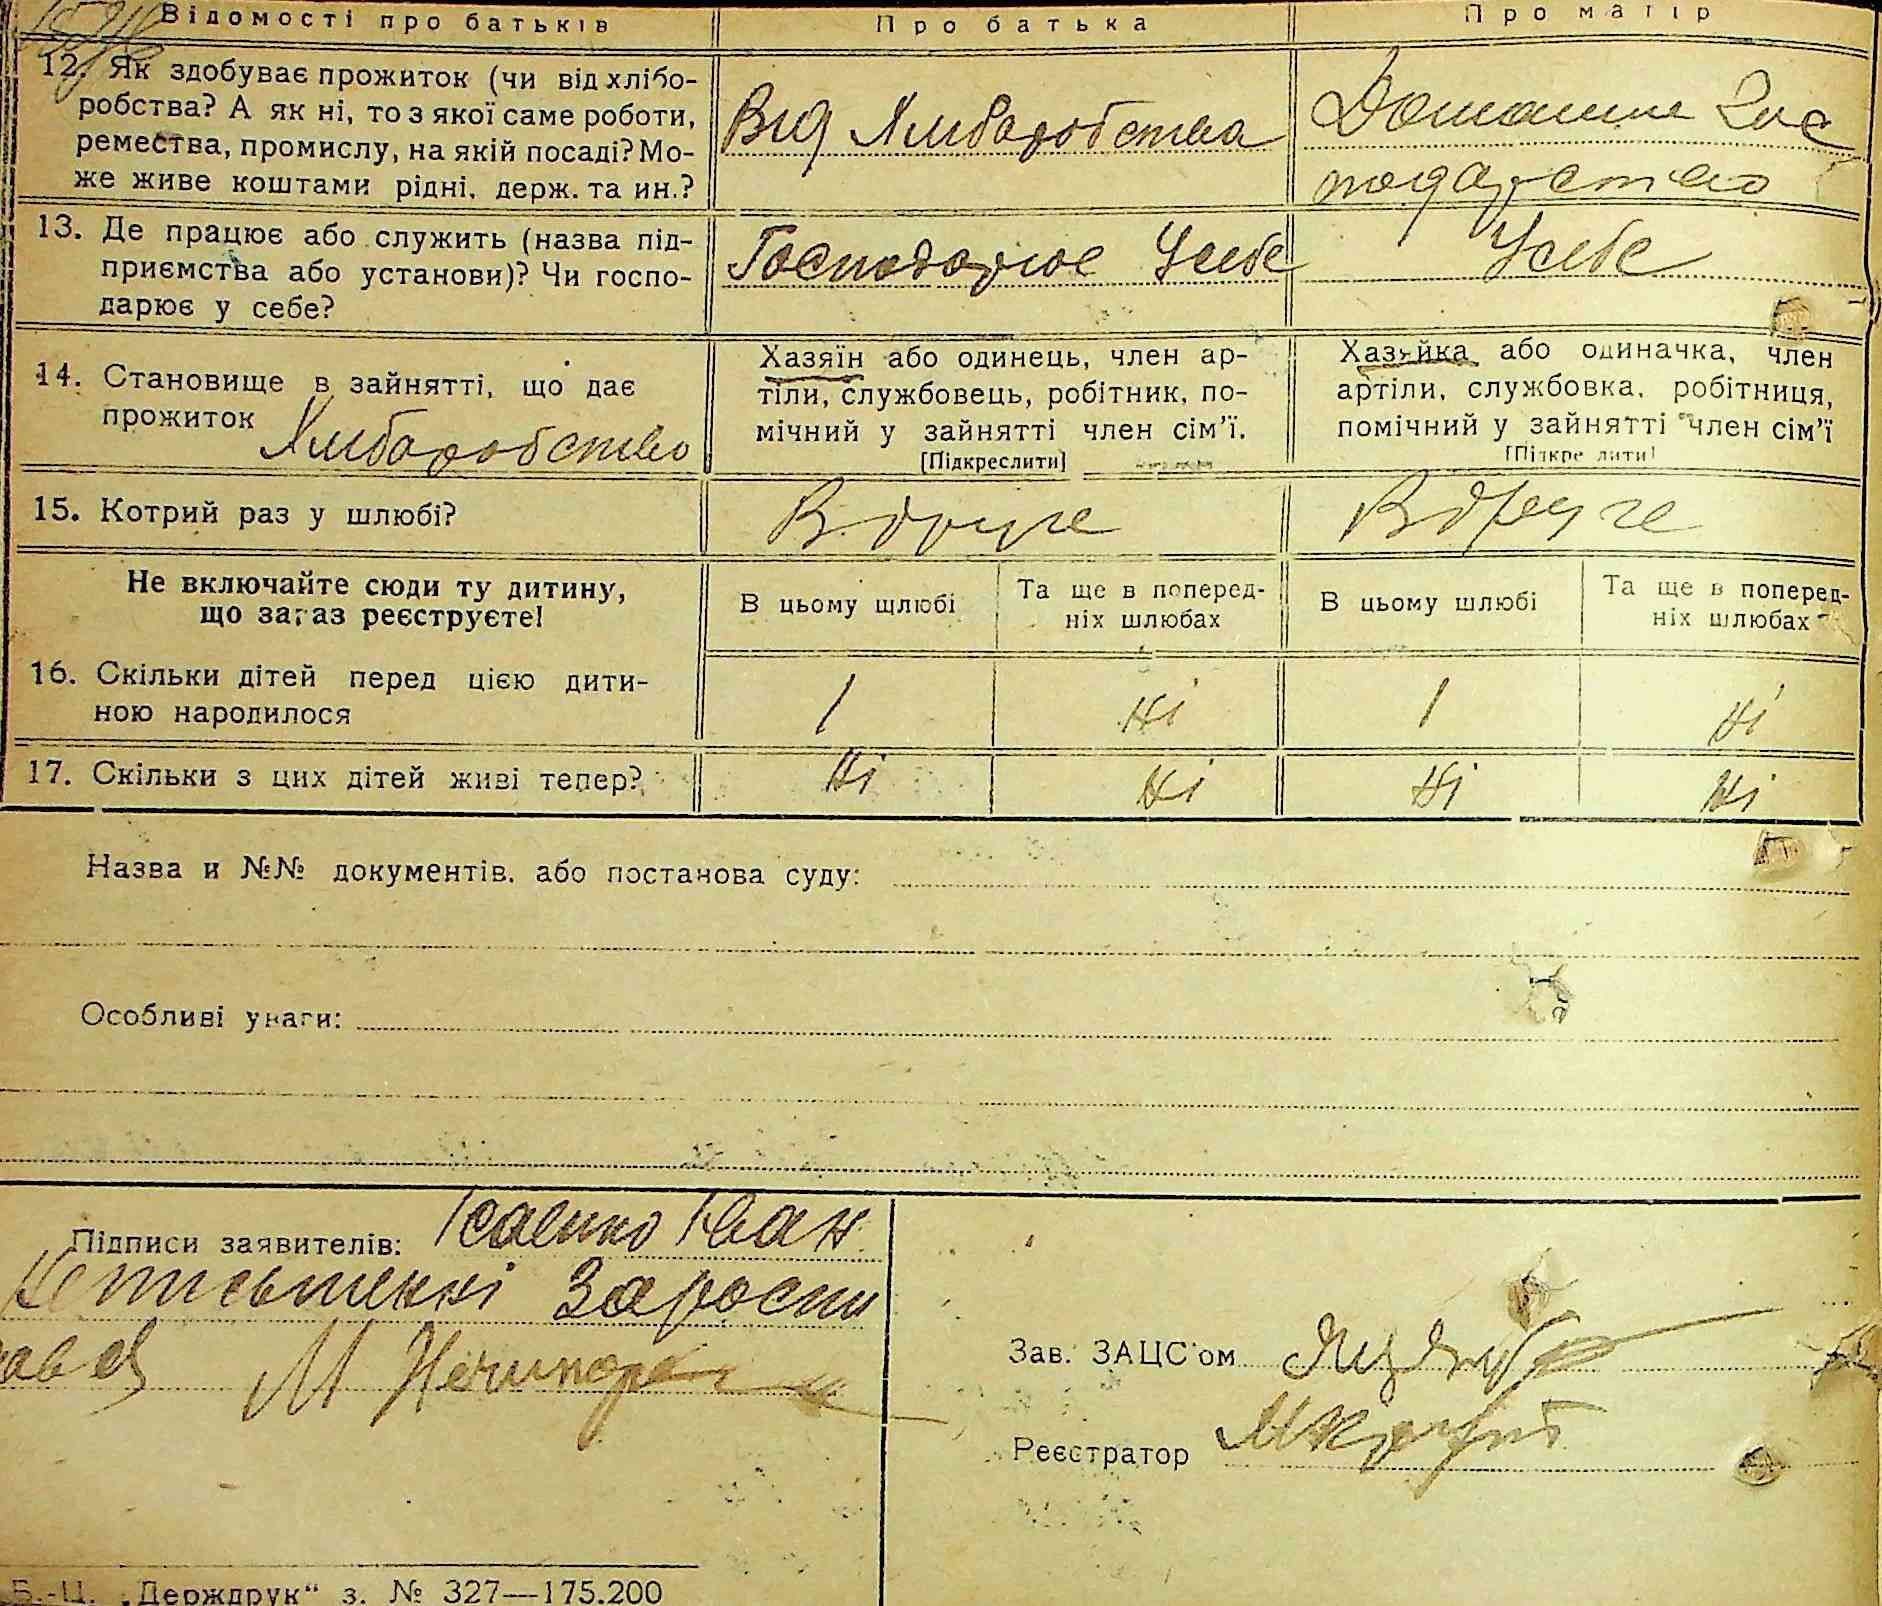 Відомості про батьків
Про батька
Про матір
12. Як здобуває прожиток (чи від хлібо-
робства? А як ні, то з якої саме роботи,
ремества, промислу, на якій посаді? Мо-
же живе коштами рідні, держ. та ин.?
Від Хлибаробства
Домашнє Гос
подарство
13. Де працює або служить (назва під-
приємства або установи)? Чи госпо-
дарює у себе?
Господарює Усебе
Усебе
14. Становище в зайнятті, що дає
прожиток Хлибаробство
Хазяїн або одинець, член ар-
тіли, службовець, робітник, по-
мічний у зайнятті член сім'ї.
[Підкреслити]
Хазяйка або одиначка, член
артіли, службовка, робітниця,
помічний у зайнятті член сім'ї
[Підкреслити]
15. Котрий раз у шлюбі?
Вдруге
Вдруге
Не включайте сюди ту дитину,
що зараз реєструєте!
В цьому шлюбі
Та ще в поперед-
ніх шлюбах
В цьому шлюбі
Та ще в поперед-
ніх шлюбах
16. Скільки дітей перед цією дити-
ною народилося
1
ні
1
ні
17. Скільки з цих дітей живі тепер?
ні
ні
ні
ні
Назва и №№ документів, або постанова суду:
Особливі уваги:
Підписи заявителів: Ісаенко Іван
Неписьменні Зароспи
М Нечипоре
Зав. ЗАЦС'ом
Реєстратор
Б.-Ц. „Держдрук“ з. № 327—175.200